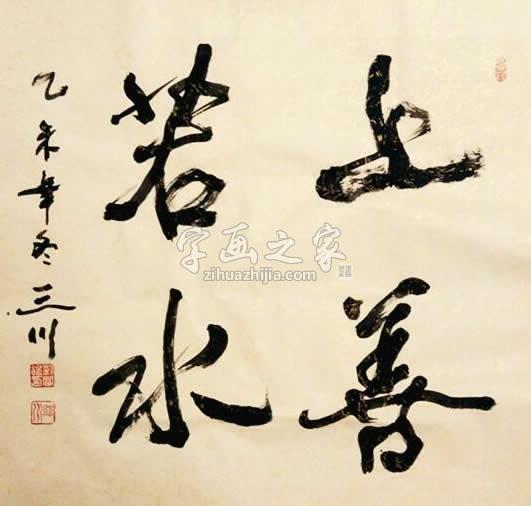 上善
若水
乙未年冬 三川
字画之家
zihuazhijia.com